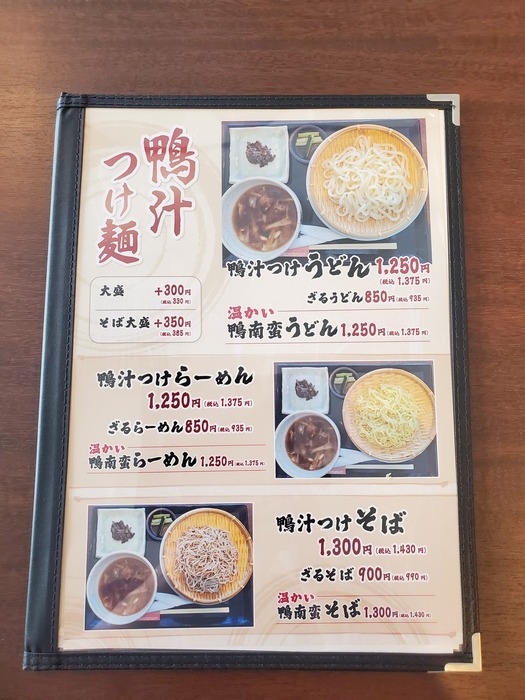 鴨汁
つけ麺
大盛 +300円
(税込 330 円)
そば大盛 +350円
(税込 385 円)
鴨汁つけうどん 1,250円
(税込 1.375 円)
ざるうどん 850円(税込 935)
温かい
鴨南蛮うどん 1,250円(税込 1.375 円)
鴨汁つけらーめん
1,250円(税込 1.375 円)
ざるらーめん 850円(税込 935)
温かい
鴨南蛮らーめん 1,250円(税込 1.375 円)
鴨汁つけそば
1,300円(税込 1.430 円)
ざるそば 900円(税込 990 円)
温かい
鴨南蛮そば 1,300円(税込 1.430 円)